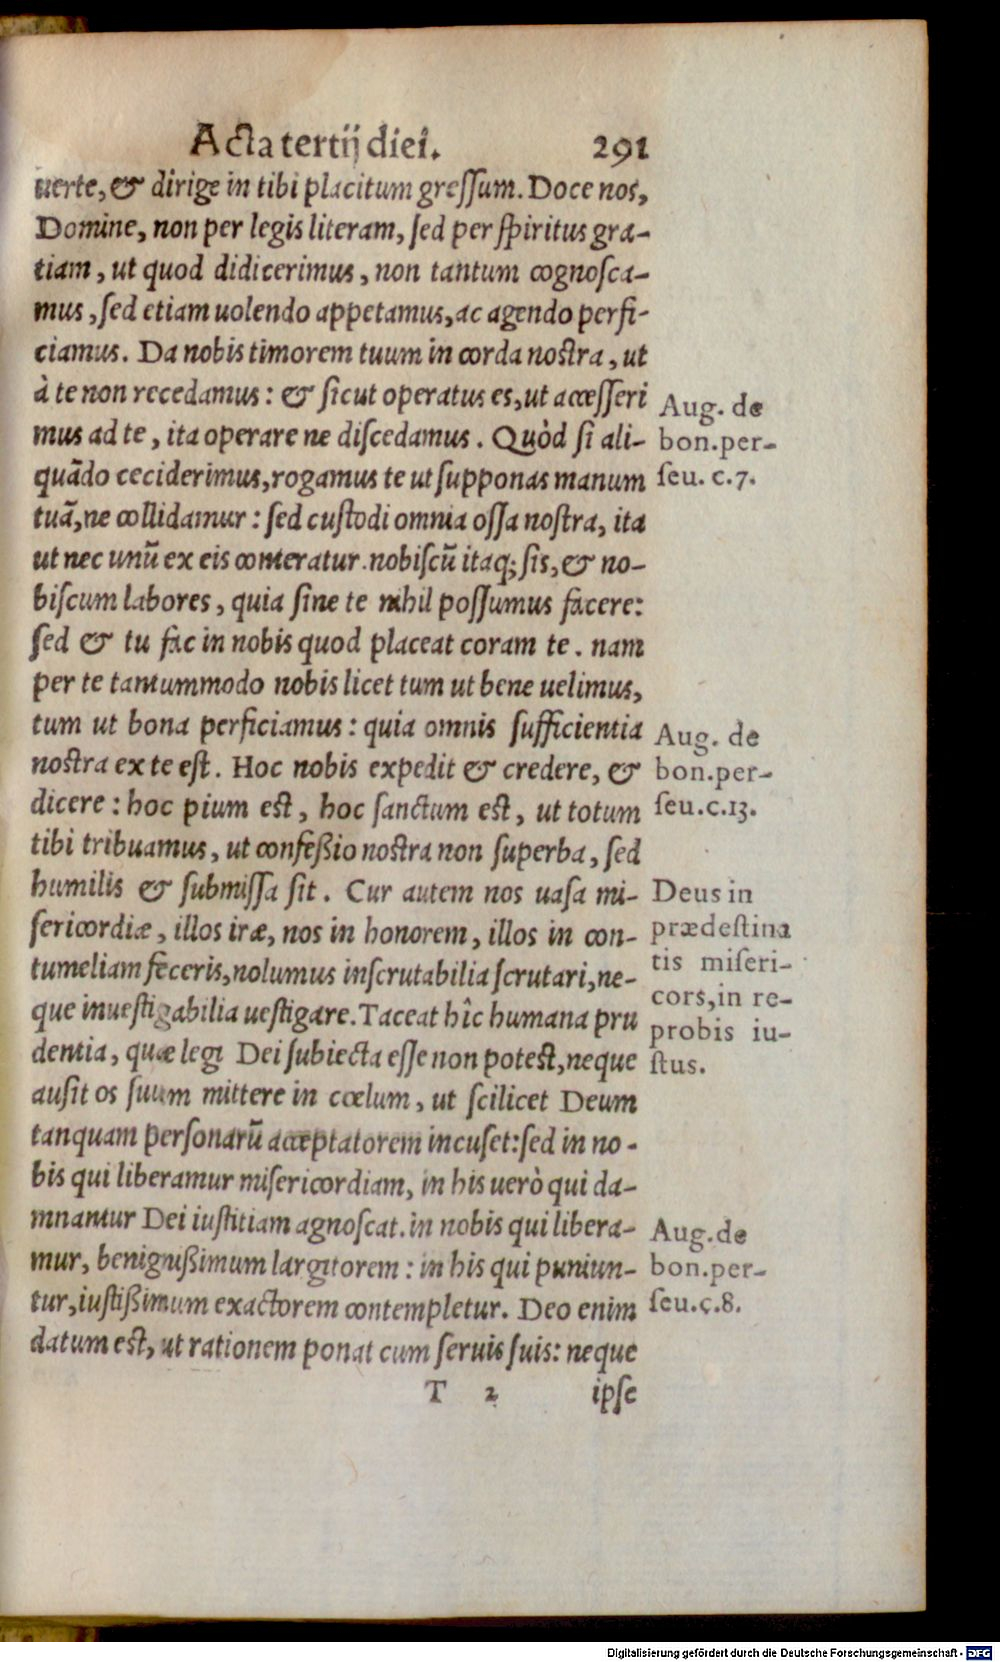 Acta tertij diei. 291
uerte, & dirige in tibi placitum gressum. Doce nos,
Domine, non per legis literam, sed per spiritus gra-
tiam, ut quod didicerimus, non tantum cognosca-
mus, sed etiam uolendo appetamus, ac agendo perfi-
ciamus. Da nobis timorem tuum in corda nostra, ut
à te non recedamus: & sicut operatus es, ut accesseri
mus ad te, ita operare ne discedamus. Quòd si ali-
quãdo ceciderimus, rogamus te ut supponas manum
tuã, ne collidamur: sed custodi omnia ossa nostra, ita
ut nec unũ ex eis conteratur. nobiscũ itaq; sis, & no-
biscum labores, quia sine te nihil possumus facere:
sed & tu fac in nobis quod placeat coram te. nam
per te tantummodo nobis licet tum ut bene uelimus,
tum ut bona perficiamus: quia omnis sufficientia
nostra ex te est. Hoc nobis expedit & credere, &
dicere: hoc pium est, hoc sanctum est, ut totum
tibi tribuamus, ut confeßio nostra non superba, sed
humilis & submissa sit. Cur autem nos uasa mi-
sericordiæ, illos iræ, nos in honorem, illos in con-
tumeliam feceris, nolumus inscrutabilia scrutari, ne-
que inuestigabilia uestigare. Taceat hîc humana pru
dentia, quæ legi Dei subiecta esse non potest, neque
ausit os suum mittere in cœlum, ut scilicet Deum
tanquam personarũ acceptatorem incuset: sed in no-
bis qui liberamur misericordiam, in his uerò qui da-
mnantur Dei iustitiam agnoscat. in nobis qui libera-
mur, benignißimum largitorem: in his qui puniun-
tur, iustißimum exactorem contempletur. Deo enim
datum est, ut rationem ponat cum seruis suis: neque
T 2 ipse
Aug. de
bon.per-
seu. c.7.
Aug. de
bon.per-
seu.c.13.
Deus in
prædestina
tis miseri-
cors, in re-
probis iu-
stus.
Aug.de
bon.per-
seu.c.8.
Digitalisierung gefördert durch die Deutsche Forschungsgemeinschaft - DFG